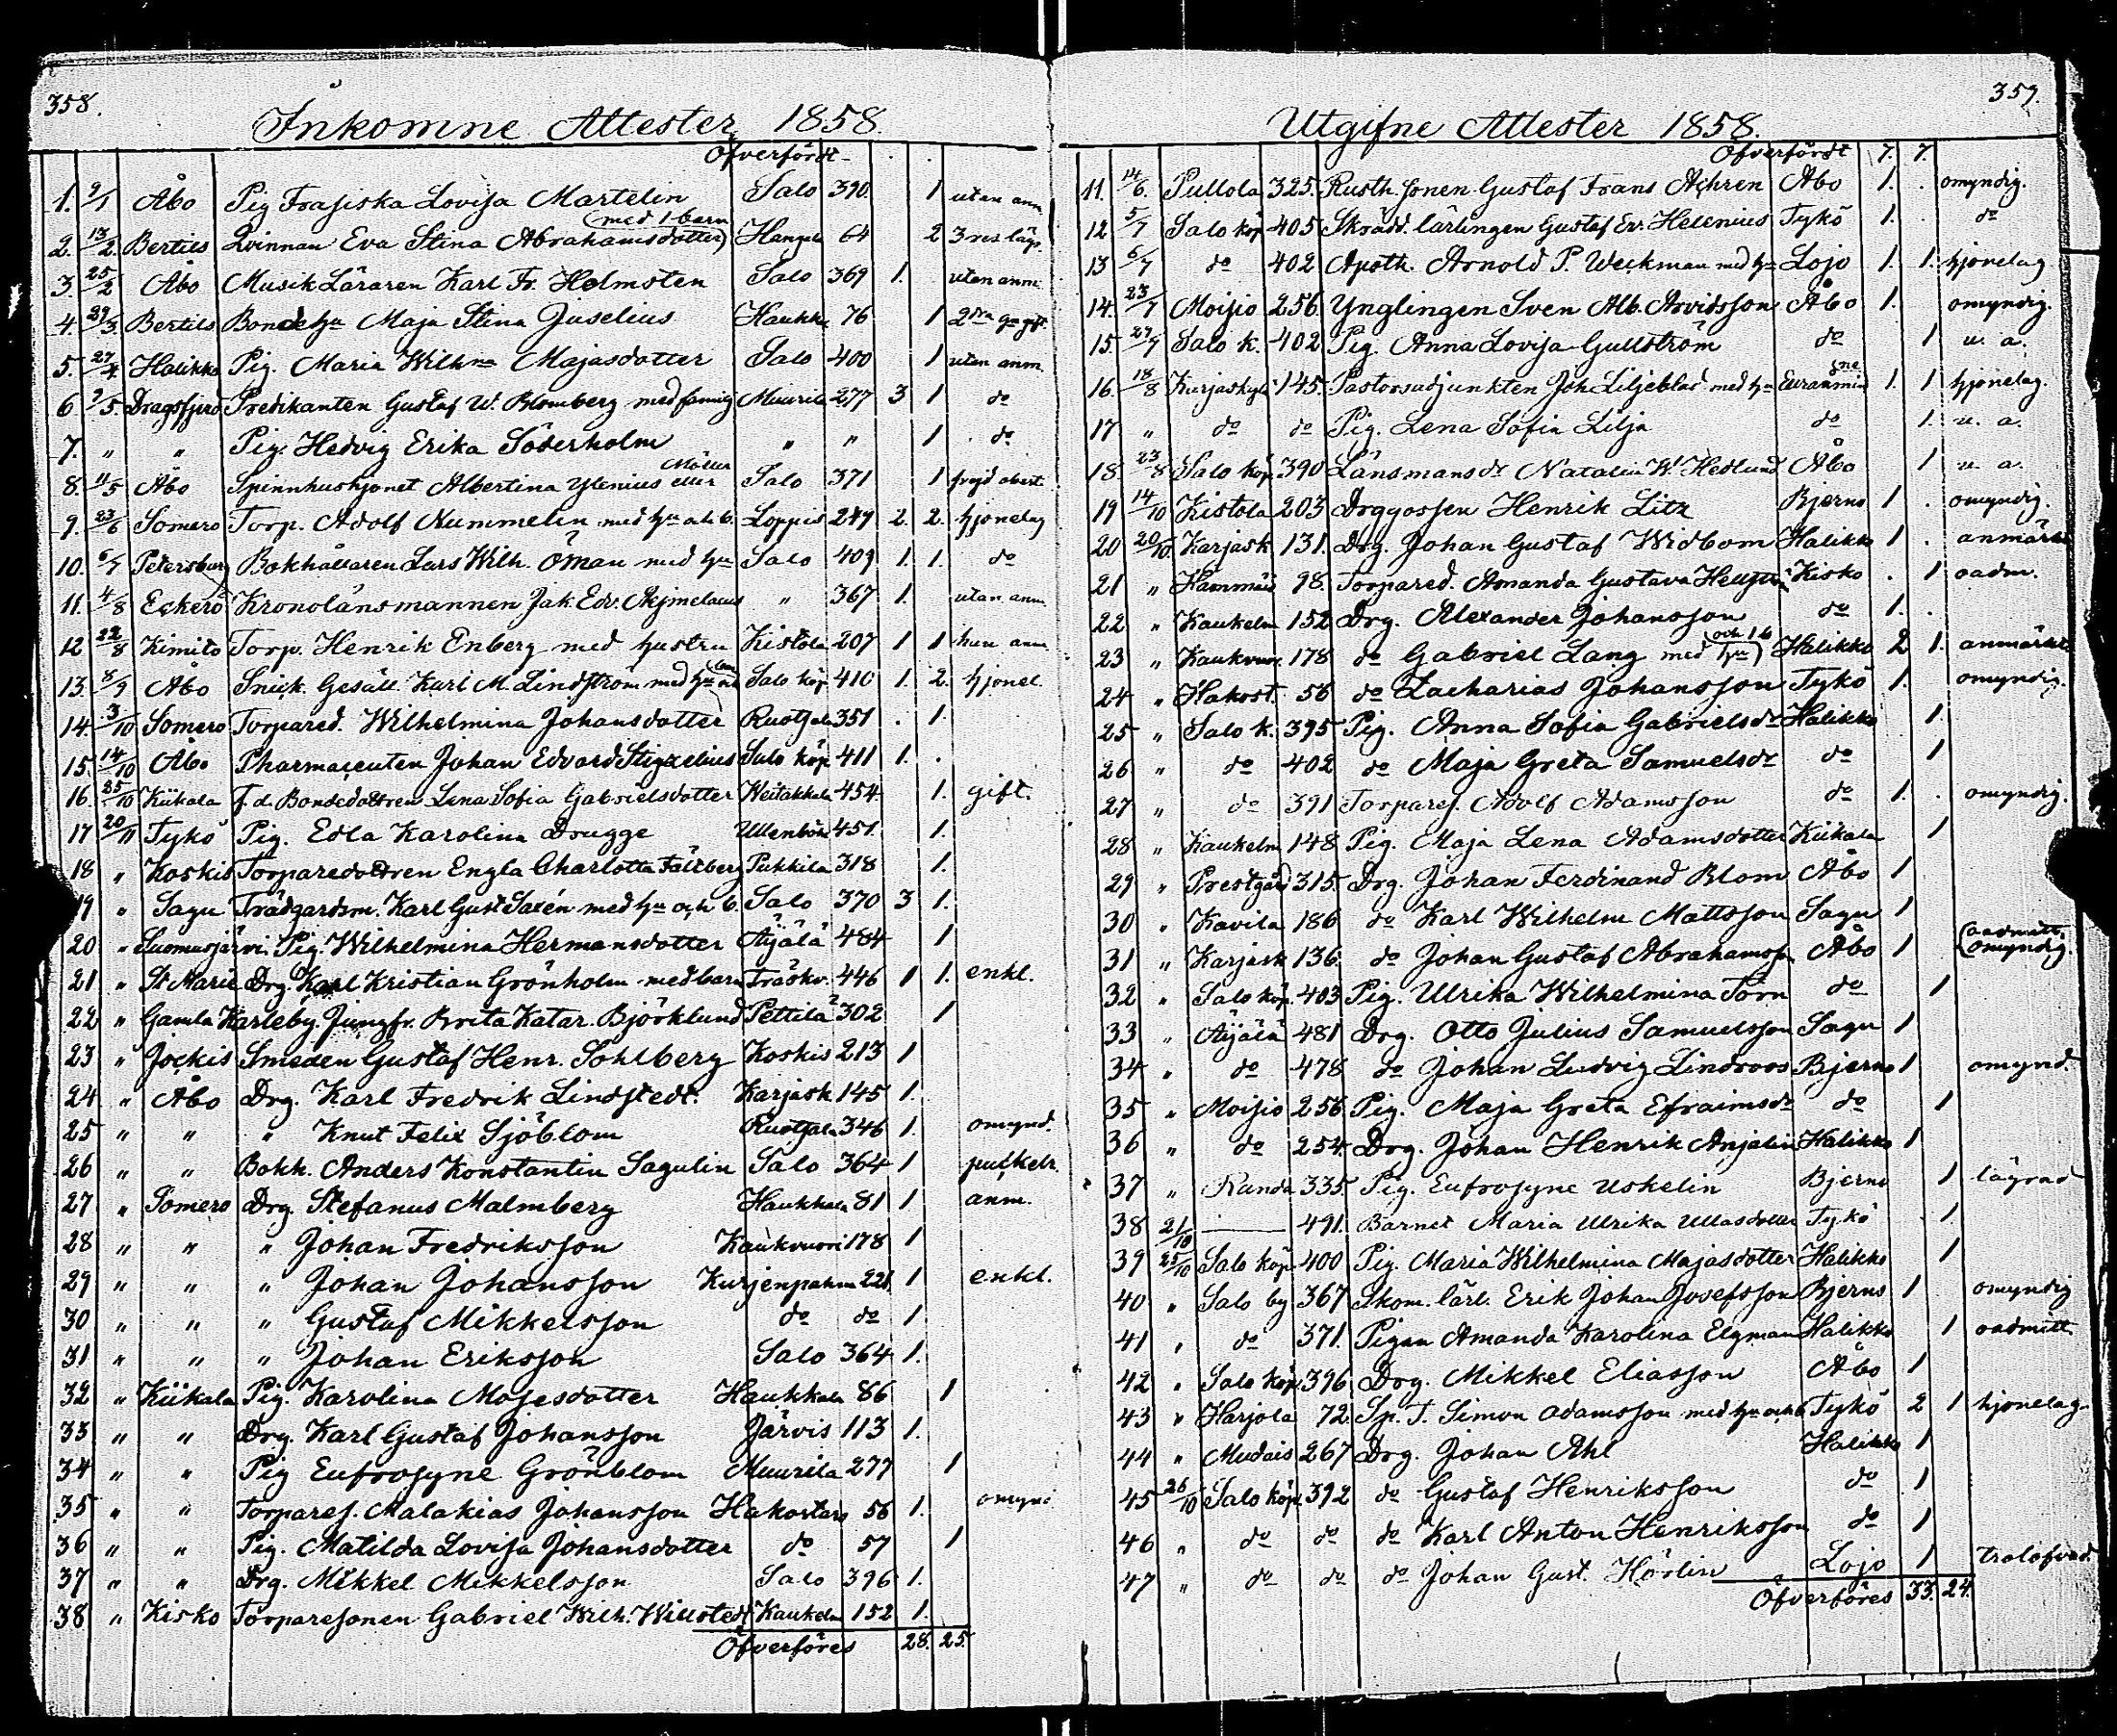 358.
Inkomne Attester 1858.
Öfverfördt
1. 9/1 Åbo Pig. Frasiska Lovisa Martelin Salo 390. 1 utan anm.
med 1 barn
2. 13/2. Bertils Qvinnan Eva Stina Abrahamsdotter 64 2 3
3. 25/2 Åbo Musik Läraren Karl Fr. Holmsten Salo 369 1. utan anm.
4. 29/3 Bertils Bonde hu Maja Stina Juselius Haukka 76 1
5. 27/4 Halikko Pig. Maria Wilhna Majasdotter Salo 400 1 utan anm.
6 7/5. Dragsfjerd Predikanten Gustaf W. Blomberg med familj Muurila 277 3 1 do
7. " " Pig. Hedvig Erika Söderholm " " 1 do
8. 11/5 Åbo Spinnhushjonet Albertina Ylenius eller Möller Salo 371 1
9. 23/6 Somero Torp. Adolf Nummelin med hu och b. Loppis 249 2. 2. hjonelag
10. 6/7 Petersburg Bokhållaren Lars Wilh. Öman med hu Salo 409 1. 1. do
11. 4/8 Eckerö Kronolänsmannen Jak. Edv. " 367 1. utan anm.
12 22/8 Kimito Torp. Henrik Enberg med hustru Kistola 207 1 1 hun anm
13. 8/9 Åbo Snick. Gesäll. Karl M. Lindström med hu Salo köp 410 1. 2. hjonel.
14. 3/10 Somero Torpared. Wilhelmina Johansdotter Ruotsala 351 . 1.
15. 14/10 Åbo Pharmaceuten Johan Edvard Stigzelius Salo köp 411 1. .
16. 25/10 Kiikala f. d. Bondedottren Lena Sofia Gabrielsdotter 454. 1. gift.
17 20/11 Tykö Pig. Edla Karolina Drugge 451. 1.
18 " Koskis Torparedottren Engla Charlotta Fältberg Pukkila 318 1.
19 " Sagu Trädgardsm. Karl Gust Saxén med hu och b. Salo 370 3 1.
20 " Suomusjärvi Pig. Wilhelmina Hermansdotter Äijälä 484 1
21 " St Marie Drg. Karl Kristian Grönholm med barn Träskv. 446 1 1. enkl.
22 " Gamla Karleby. Jungfr. Brita Katar. Björklund Pettilä 302 1
23 " Jockis Smeden Gustaf Henr. Sohlberg Koskis 213 1
24 " Åbo Drg. Karl Fredrik Lindstedt. Karjask 145 1.
25 " " " Knut Felix Sjöblom Ruotsala 346 1. omynd.
26 " " Bokh. Anders Konstantin Sagulin Salo 364 1
27 " Somero Drg Stefanus Malmberg Haukkala 81 1 anm.
28 " " " Johan Fredriksson Kaukvuori 178 1
29 " " " Johan Johansson Kurjenpahna 221 1 enkl.
30 " " " Gustaf Mikkelsson do do 1
31 " " " Johan Eriksson Salo 364 1.
32 " Kiikala Pig. Karolina Mosesdotter Haukkala 86 1
33 " " Drg. Karl Gustaf Johansson Järvis 113 1.
34 " " Pig Eufrosyne Grönblom Muurila 277 1
35 " " Torpares. Malakias Johansson Hakostaro 56 1. omynd
36 " " Pig. Matilda Lovisa Johansdotter do 57 1
37 " " Drg. Mikkel Mikkelsson Salo 396 1.
38 " Kisko Torparesonen Gabriel Wilh. Willstedt Kaukelm 152 1.
Öfverföres 28. 25.
359.
Utgifne Attester 1858.
Öfverfördt 7. 7.
11. 14/6. Pullola 325. Rusth. sonen Gustaf Frans Achren Åbo 1. . omyndig.
12 5/7 Salo köp 405 Skrädd. lärlingen Gustaf Ev. Helenius Tykö 1. do
13 6/7 do 402 Apoth. Arnold P. Weckman med hu Lojo 1. 1. hjonelag
14. 23/7 Moisio 256. Ynglingen Sven Alb. Arvidsson Åbo 1. omyndig.
15. 27/7 Salo k. 402 Pig. Anna Lovisa Gullström do 1 u. a.
16. 18/8 Karjaskylä 145. Pastorsadjunkten Joh. Liljeblad med hu 1. 1 hjonelag.
17 " do do Pig. Lena Sofia Lilja do 1. u. a.
18. 23/8 Salo köp 390 Länsmansdr Natalia W. Hedlund Åbo 1 u. a.
19 14/10 Kistola 203 Drggossen Henrik Litz Bjerno 1 . omyndig.
20 20/10. Karjask 131. Drg. Johan Gustaf Widbom Halikko 1 . anmärkt
21 " 98. Torpared. Amanda Gustava Kisko . 1 oadm.
22 " Kaukelm 152 Drg. Alexander Johansson do 1. .
23 " Kaukvuor. 178 do Gabriel Lang med hu och 1 b Halikko 2 1. anmärkt
24 " Hakost. 56 do Zacharias Johansson Tykö 1. omyndig.
25 " Salo k. 395 Pig. Anna Sofia Gabrielsdr Halikko 1.
26 " do 402 do Maja Greta Samuelsdr do 1
27 " do 391 Torpares. Adolf Adamsson do 1. . omyndig.
28 " Kaukelm 148 Pig. Maja Lena Adamsdotter Kiikala 1
29 " Prestgård 315. Drg. Johan Ferdinand Blom Åbo 1
30 " Kavila 186 do Karl Wilhelm Mattsson Sagu 1
31 " Karjask 136. do Johan Gustaf Abrahamss Åbo 1 oadmitt. omyndig.
32 " Salo köp. 403 Pig. Ulrika Wilhelmina Törn do 1
33 " Äijälä 481 Drg. Otto Julius Samuelsson Sagu 1
34 " do 478 do Johan Ludvig Lindroos Bjerno 1 omynd.
35 " Moisio 256 Pig. Maja Greta Efraimsdr do 1
36 " do 254. Drg. Johan Henrik Anjalin Halikko 1
37 " Randa 335. Pig. Eufrosyne Uskelin Bjerno 1 lägrad
38 21/10 — 491. Barnet Maria Ulrika Ullasdotter Tykö 1.
39 25/10 Salo köp 400 Pig. Maria Wilhelmina Majasdotter Halikko 1
40 " Salo by 367 Skom. lärl. Erik Johan Josefsson Bjerno 1 omyndig
41 " do 371. Pigan Amanda Karolina Elgman Halikko 1 oadmitt.
42 " Salo köp 396 Drg. Mikkel Eliasson Åbo 1
43 " Harjola 72. Sp. T. Simon Adamsson med hu och b Tykö 2 1 hjonelag.
44 " Mudais 267 Drg. Johan Ahl Halikko 1
45 26/10 Salo köp. 392 do Gustaf Henriksson do 1
46 " do do do Karl Anton Henriksson do 1
47 " do do do Johan Gust. Hörlin Lojo 1 trolofvad.
Öfverföres 33. 24.